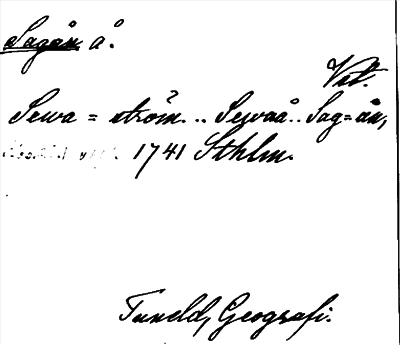 Sagån å.
Vst.
Sewa = ström .. Sewaå .. Sag=ån,
1741 Sthlm.
Tuneld, Geografi.